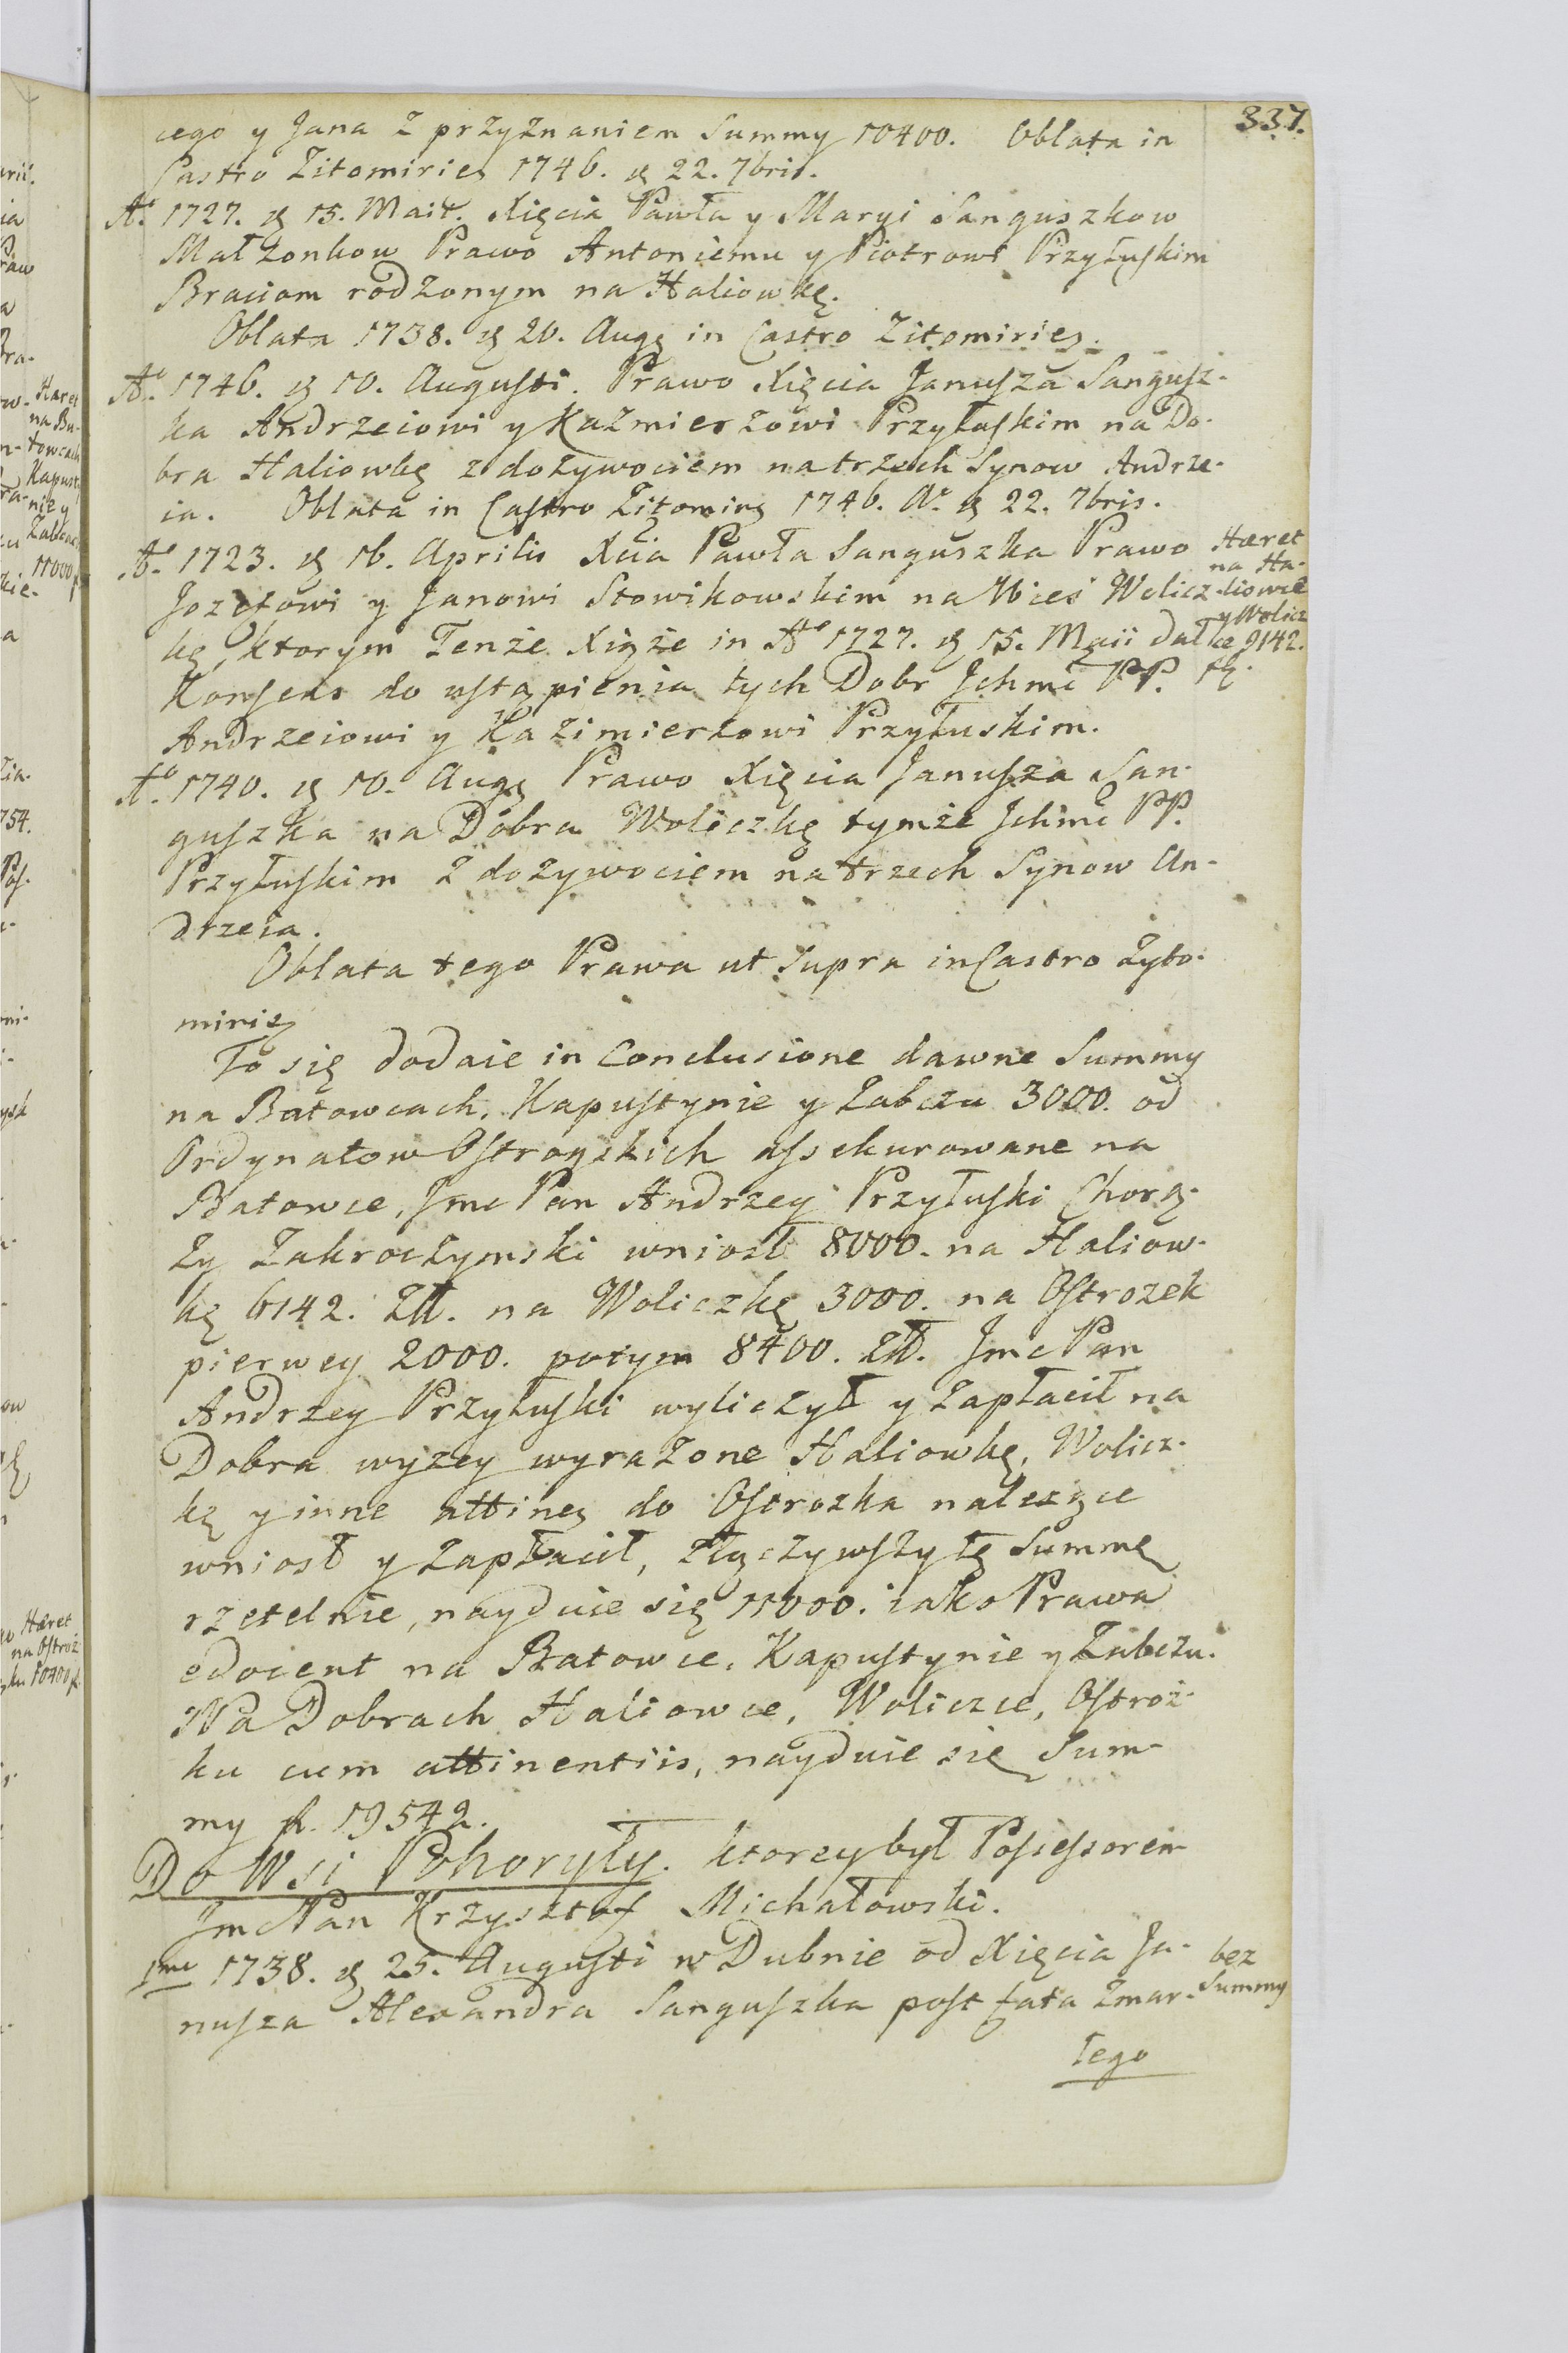 337.
cego y Jana z przyznaniem Summy 10400. Oblata in
Castro Zitomiries 1746. d 22. 7bris.
Aº 1727. d 15. Maii. Xięcia Pawła y Maryi Sanguszkow
Małżonkow Prawo Antoniemu y Piotrowi Przyłuskim
Braciom rodzonym na Haliowkę.
Oblata 1738. d 20. Aug in Castro Zitomiries.
Aº 1746. d 10. Augusti. Prawo Xięcia Janusza Sangusz-
ka Andrzeiowi y Kazmierzowi Przyłuskim na Do-
bra Haliowkę z dożywociem na trzech Synow Andrze-
ia. Oblata in Castro Zitomirs 1746. Aº d 22. 7bris.
Aº 1723. d 16. Aprilis Xcia Pawła Sanguszka Prawo
Jozefowi y Janowi Słowikowskim na Wieś Wolicz-
kę, ktorym Tenże Xiąże in Aº 1727. d 15. Maii dał
Konsens do ustąpienia tych Dobr Jchmć PP.
Andrzeiowi y Kazimierzowi Przyłuskim.
Hæret
na Ha-
liowce
y Wolicz
ce 9142.
fl.
Aº 1740. d 10. Aug Prawo Xięcia Janusza San-
guszka na Dobra Woliczkę tymże Jchmć PP.
Przyłuskim z dożywociem na trzech Synow An-
drzeia.
Oblata tego Prawa ut Supra in Castro Żyto-
miries
To się dodaie in Conclusione dawne Summy
na Batowcach, Kapustynie y Zabczu 3000. od
Ordynatow Ostrogskich assekurowane na
Batowce, Jmc Pan Andrzey Przyłuski Chorą-
ży Zakroczymski wniosł 8000. na Haliow-
kę 6142. Zł. na Woliczkę 3000. na Ostrożek
pierwey 2000. potym 8400. Zł. Jmc Pan
Andrzey Przyłuski wyliczył y zapłacił na
Dobra wyżey wyrażone Haliowkę, Wolicz-
kę y inne attines do Ostrożka należące
wniosł y zapłacił, złączywszy tę Summę
rzetelnie, nayduie się 11000. iako Prawa
edocent na Batowce, Kapustynie y Zabczu.
Na Dobrach Haliowce, Woliczce, Ostroż-
ku cum attinentiis, nayduie się Sum-
my fl. 19542.
Do Wsi Pohoryły. ktorey był Possessorem
Jmc Pan Krzysztof Michałowski.
1mo 1738. d 25. Augusti w Dubnie od Xięcia Ja-
nusza Alexandra Sanguszka post fata Zmar-
bez
Summy
łego